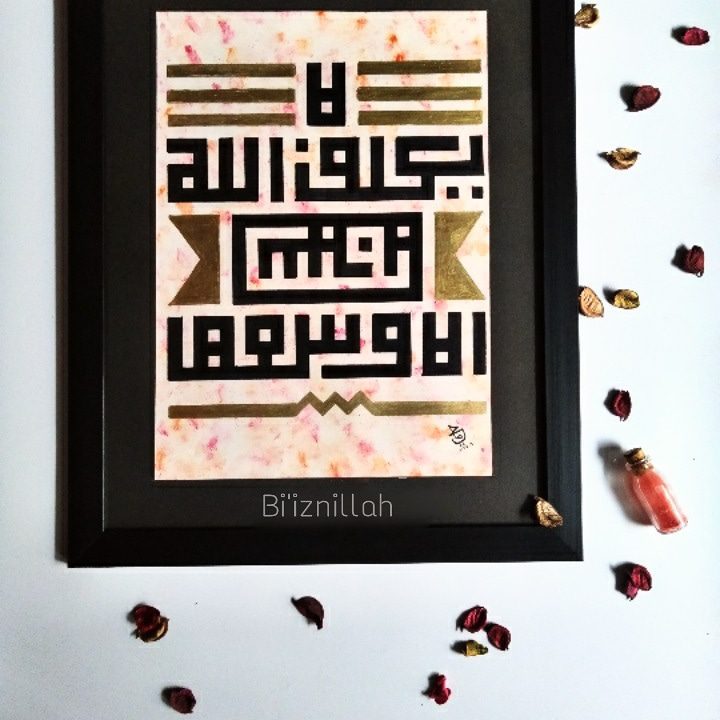 لا
يكلف الله
نفسا
الا وسعها
Bi'iznillah